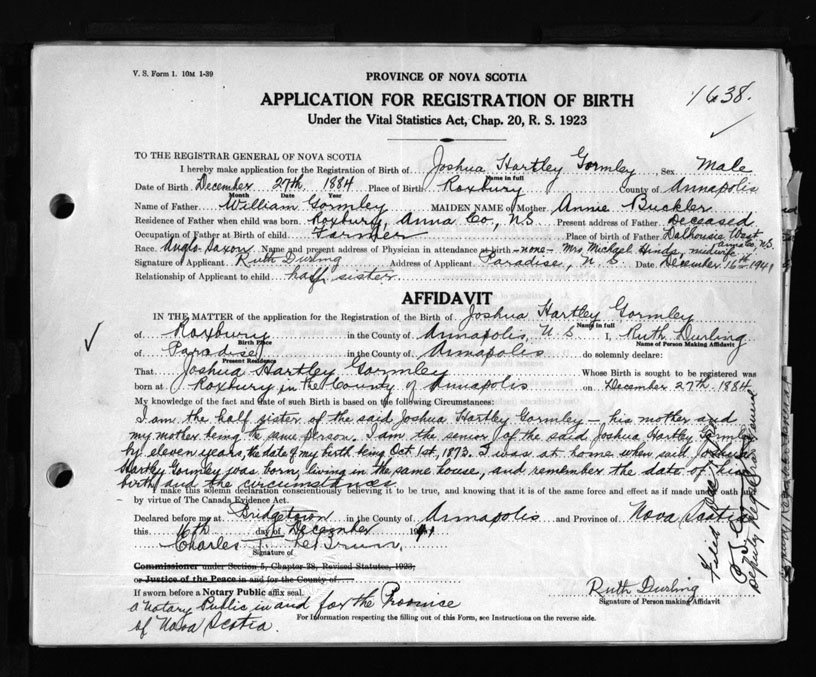 V. S. Form 1. 10M 1-39
1638.
PROVINCE OF NOVA SCOTIA
APPLICATION FOR REGISTRATION OF BIRTH
Under the Vital Statistics Act, Chap. 20, R. S. 1923
TO THE REGISTRAR GENERAL OF NOVA SCOTIA
I hereby make application for the Registration of Birth of Joshua Hartley Gormley, Sex Male
Name in full
Date of Birth December 27th 1884 Place of Birth Roxbury County of Annapolis
Month Date Year
Name of Father William Gormley MAIDEN NAME of Mother Annie Buckler
Residence of Father when child was born. Roxbury, Anna Co., N.S Present address of Father Deceased
Occupation of Father at Birth of child Farmer Place of birth of Father Dalhousie West
Anna Co. N.S.
Race. Anglo Saxon Name and present address of Physician in attendance at birth – none – Mrs Michael Hinds, midwife
Signature of Applicant Ruth Durling Address of Applicant Paradise, N. S Date December 16th 1941
Relationship of Applicant to child half sister
AFFIDAVIT
IN THE MATTER of the application for the Registration of the Birth of Joshua Hartley Gormley
Name in full
of Roxbury in the County of Annapolis, N. S I, Ruth Durling
Birth Place Name of Person Making Affidavit
of Paradise in the County of Annapolis do solemnly declare:
Present Residence
That Joshua Hartley Gormley Whose Birth is sought to be registered was
born at Roxbury in the County of Annapolis on December 27th 1884
My knowledge of the fact and date of such Birth is based on the following Circumstances:
I am the half sister of the said Joshua Hartley Gormley – his mother and
my mother being the same person. I am the senior of the said Joshua Hartley Gormley
by eleven years, the date of my birth being Oct 1st, 1873. I was at home when said Joshua
Hartley Gormley was born, living in the same house, and remember the date of his
birth and the circumstances
I make this solemn declaration conscientiously believing it to be true, and knowing that it is of the same force and effect as if made under oath and
by virtue of The Canada Evidence Act.
Declared before me at Bridgetown in the County of Annapolis and Province of Nova Scotia
this 16th day of December 1941
Charles T. LeBrun,
Signature of.
Commissioner under Section 5, Chapter 38, Revised Statutes, 1923,
or Justice of the Peace in and for the County of
If sworn before a Notary Public affix seal.
a Notary Public in and for the Province
of Nova Scotia.
Ruth Durling
Signature of Person making Affidavit
For Information respecting the filling out of this Form, see Instructions on the reverse side.
Filed
Deputy Registrar General